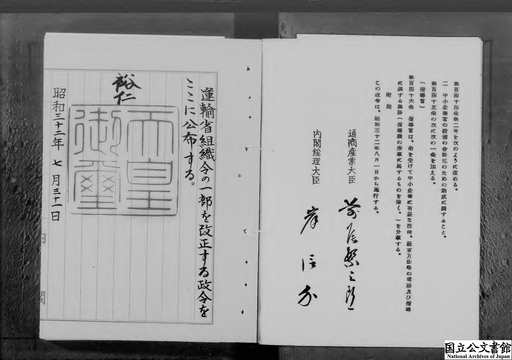 第百四十四条第二号を次のように改める。
二 中小企業の設備の合理化のための助成に関すること。
第百四十五条の次に次の一条を加える。
(指導官)
第百四十六条 指導官は、命を受けて中小企業に
に関する事務(指導課の所掌に属するものを除く。)を分掌する。
附 則
この政令は、昭和三十二年八月一日から施行する。
通商産業大臣 前尾繁三郎
内閣総理大臣 岸信介
運輸省組織令の一部を改正する政令を
ここに公布する。
裕仁
天皇
御璽
昭和三十二年 七月三十一日
国立公文書館
National Archives of Japan